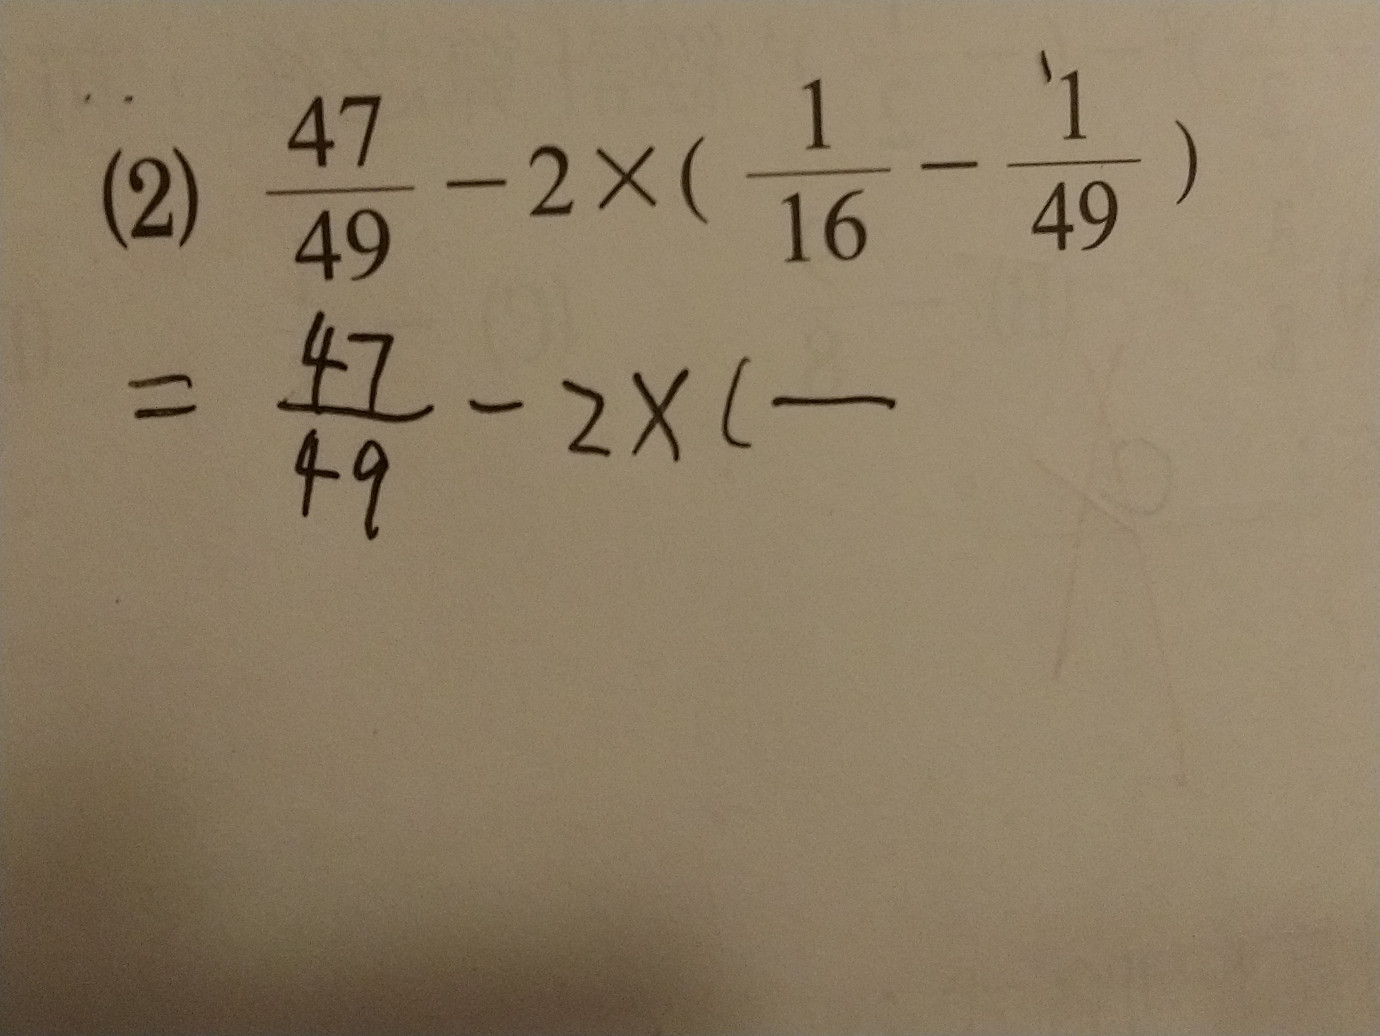 (2) 47/49 − 2 × ( 1/16 − 1/49 )
= 47/49 − 2 × ( —